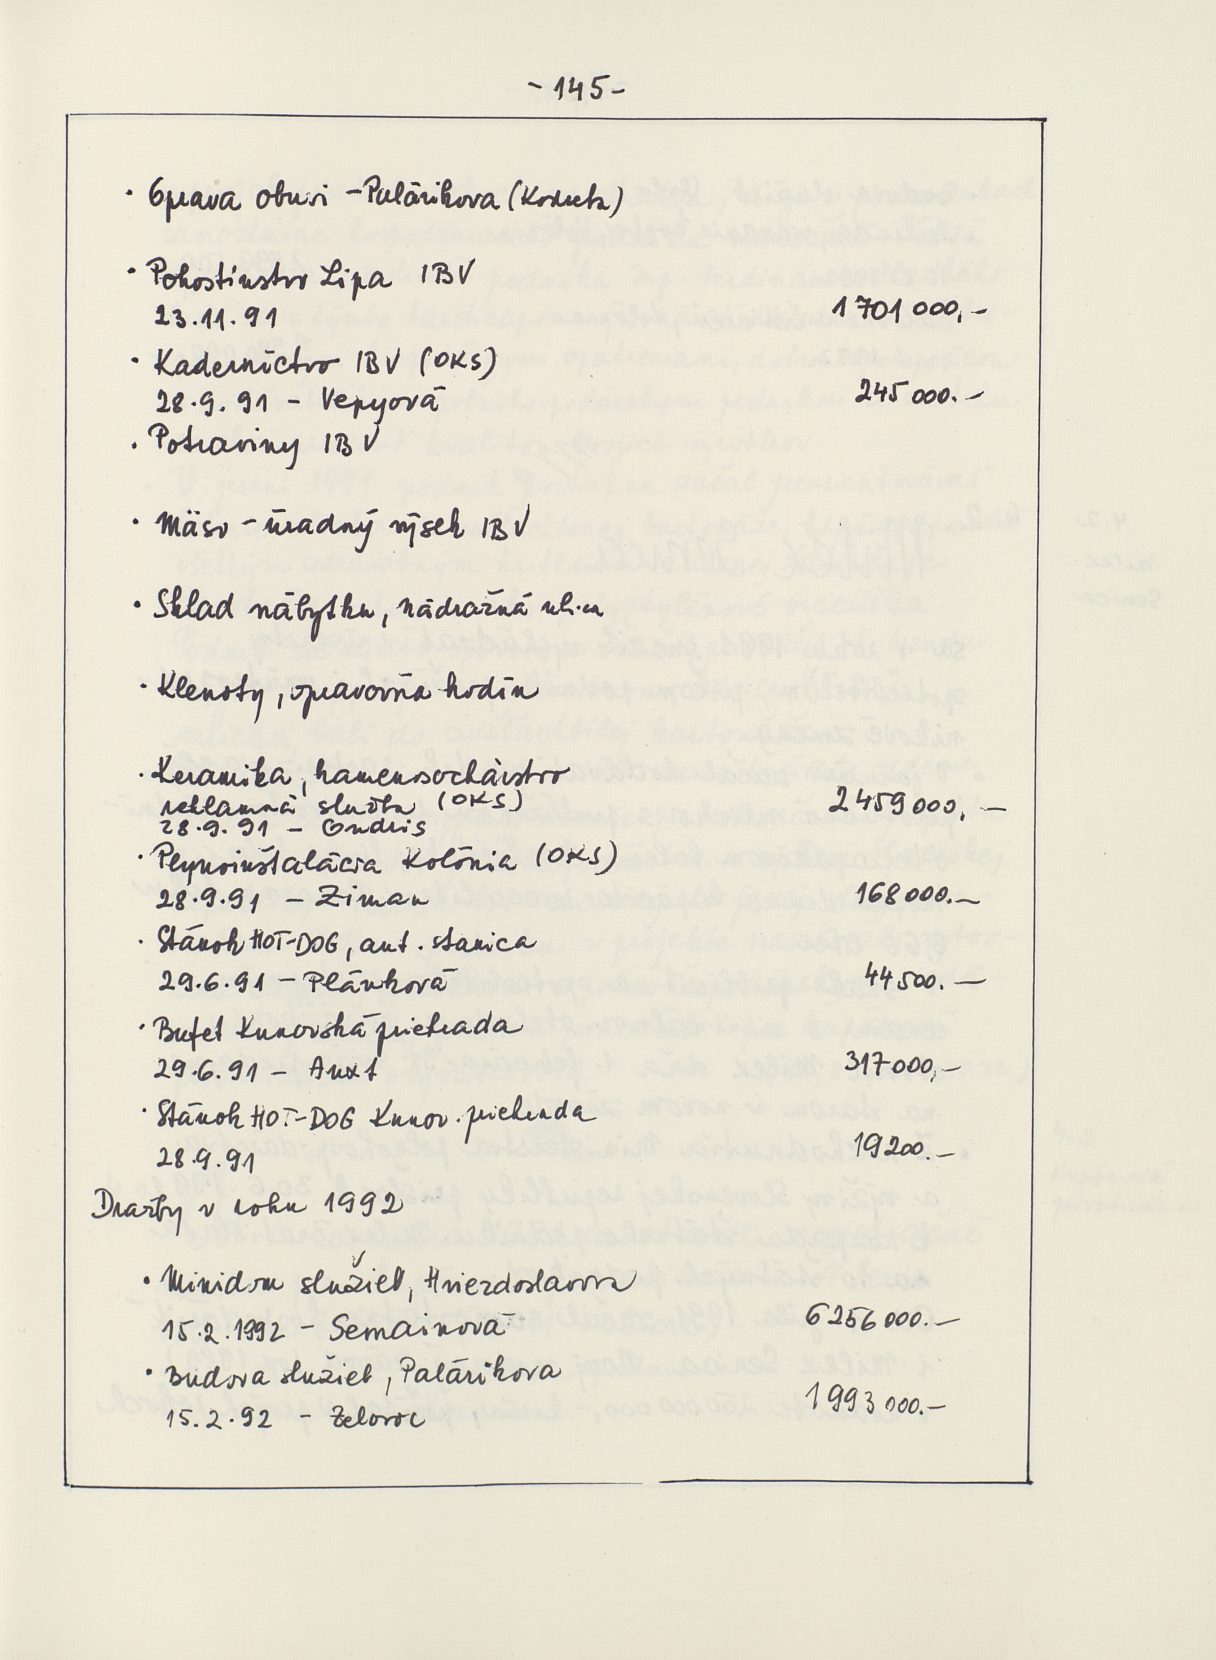 - 145 -
· Oprava obuvi - Palárikova (Korueta)
· Pohostinstvo Lipa IBV
23.11.91 1 701 000,-
· Kadernictvo IBV (OKS)
28.9.91 - Vepyová 245 000.-
· Potraviny IBV
· Mäso - úradný výsek IBV
· Sklad nábytku, nádražná ulica
· Klenoty, opravovňa hodín
· Keramika, kamenosochárstvo
reklamná služba (OKS) 2 459 000,-
28.9.91 - Ondris
· Plynoinštalácia Kolónia (OKS)
28.9.91 - Ziman 168 000.-
· Stánok HOT-DOG, aut. stanica
29.6.91 - Plánková 44 500.-
· Bufet Kunovská priehrada
29.6.91 - Auxt 317 000,-
· Stánok HOT-DOG Kunov. priehrada
28.9.91 19 200.-
Dražby v roku 1992
· Minidom služieb, Hviezdoslavova
15.2.1992 - Semainová 6 256 000.-
· Budova služieb, Palárikova
15.2.92 - Zelovoc 1 993 100.-